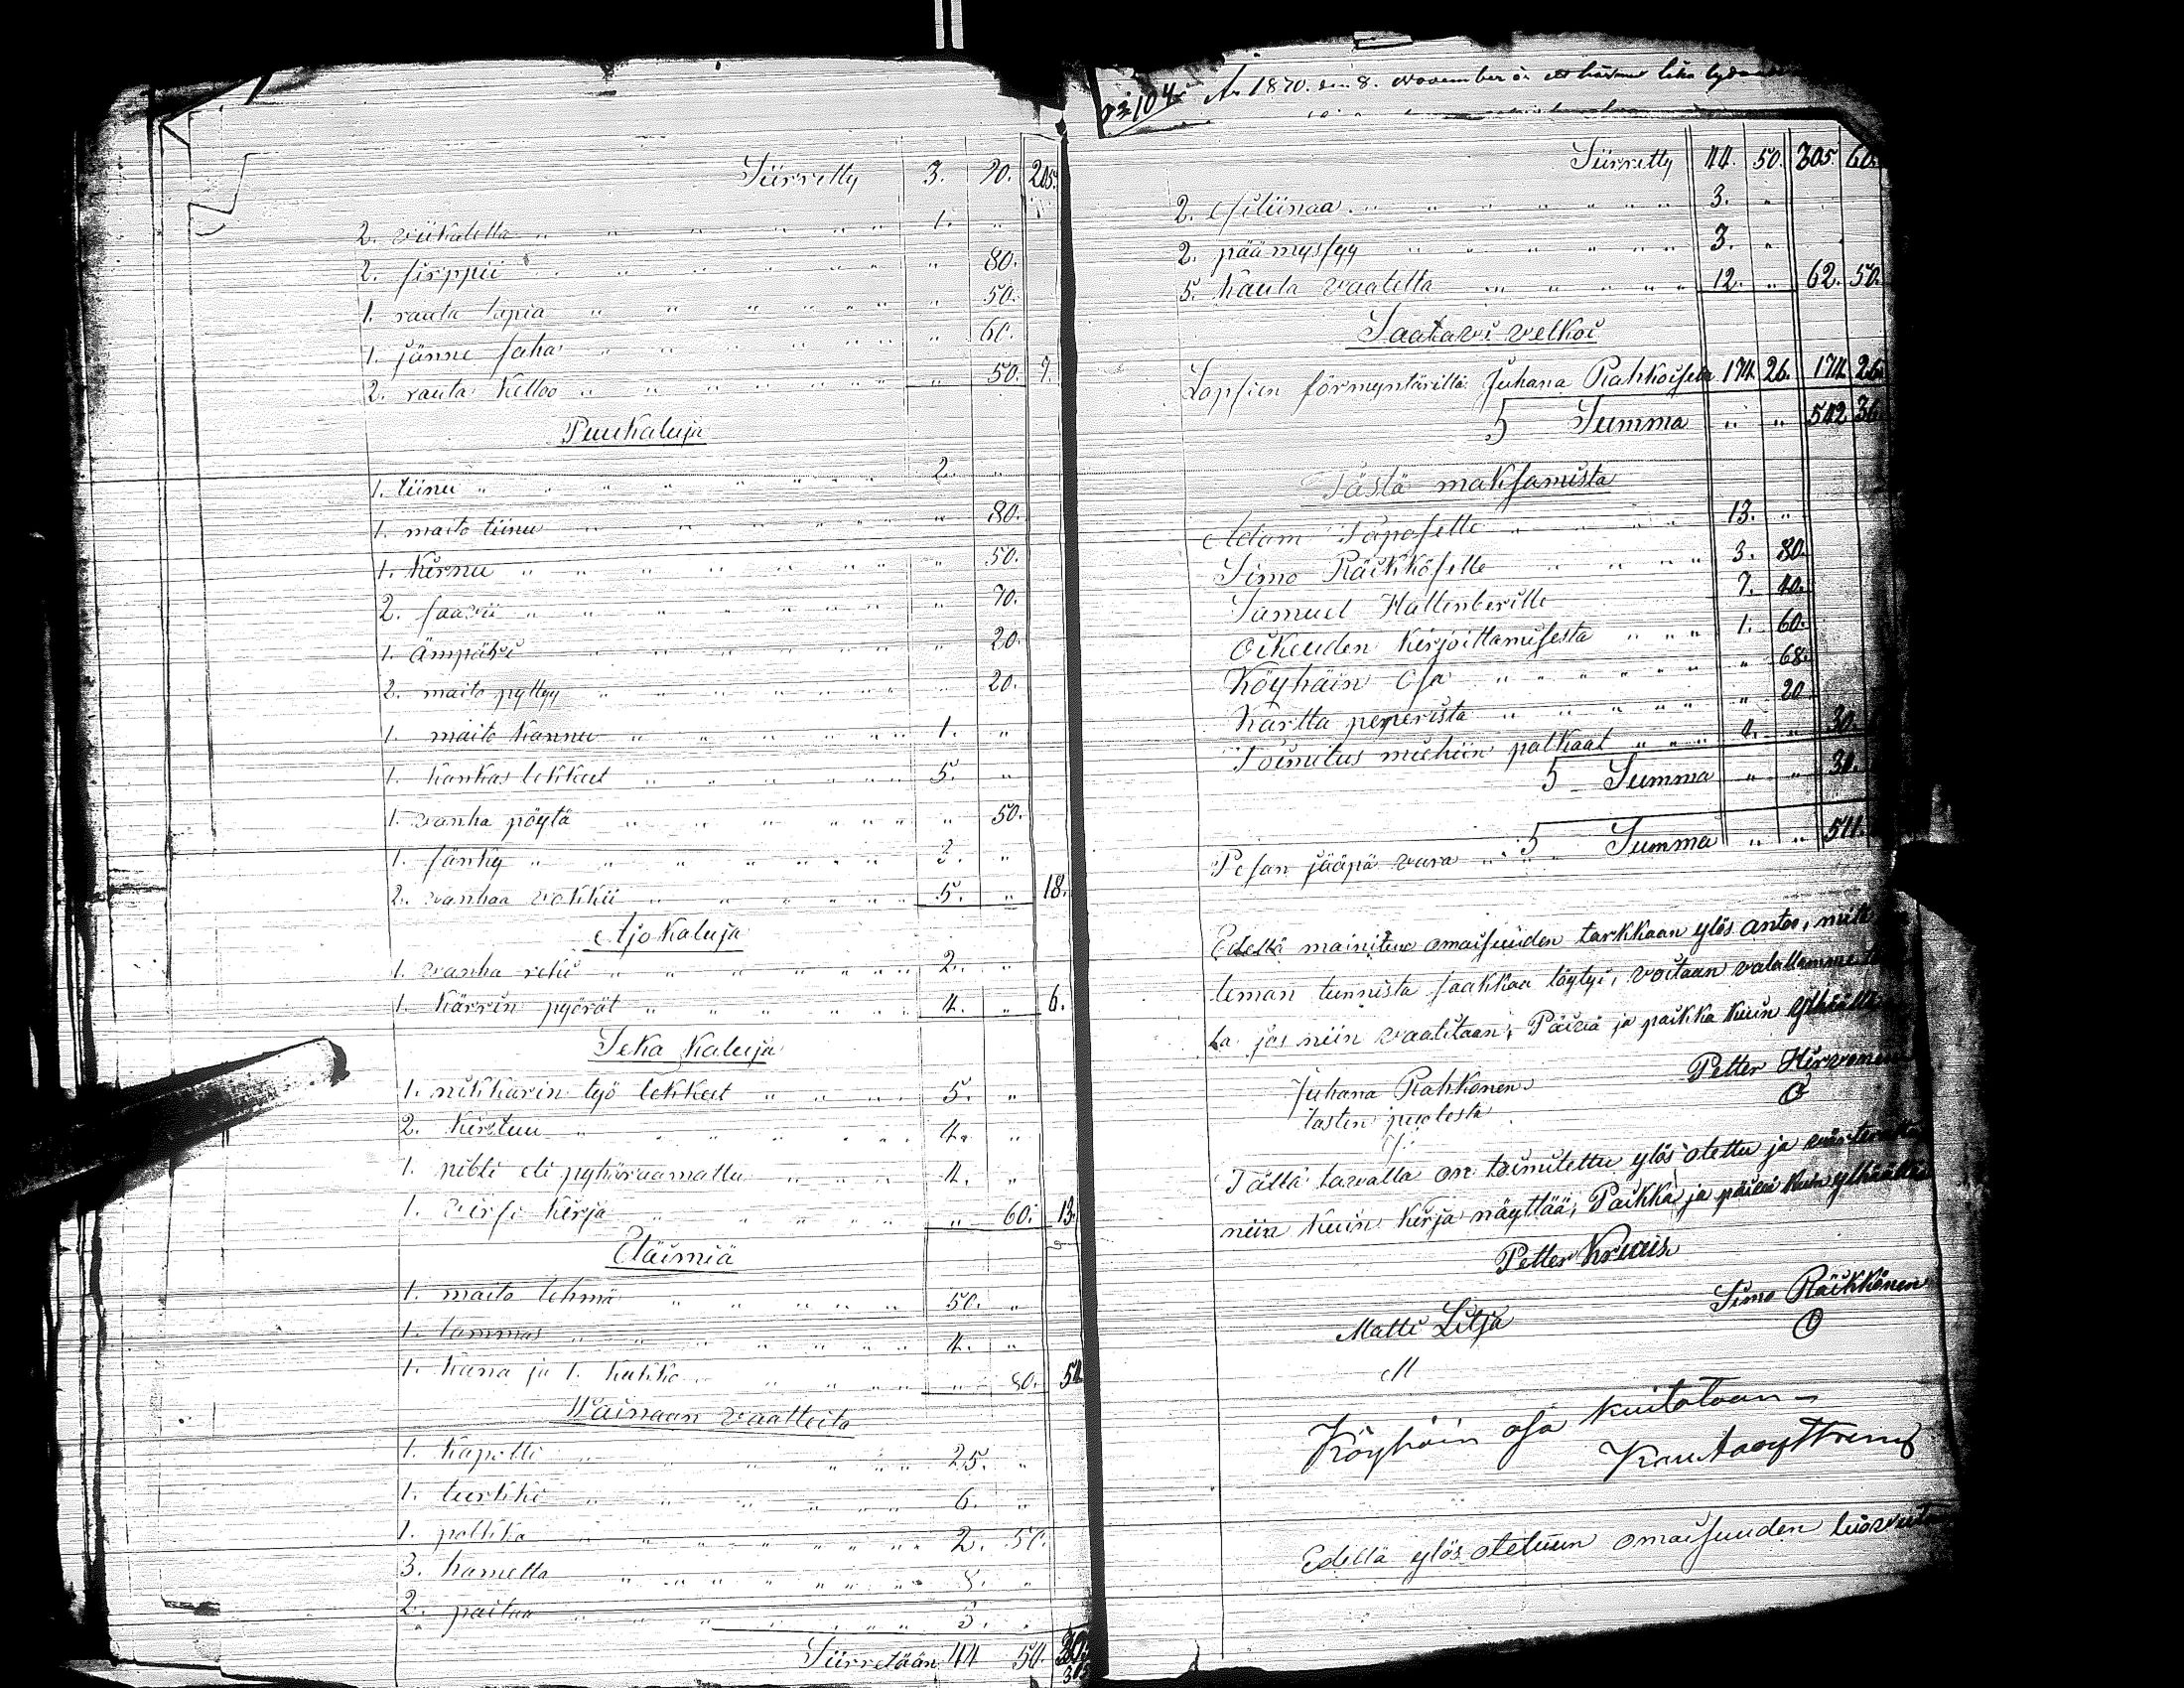 Siirretty 3. 20. 205.
2. viikatetta " " " " " " 1. "
2. sirppii " " " " " " " 80.
1. rauta lapia " " " " " " " 50.
1. jänne saha " " " " " " " 60.
2. rauta kelloo " " " " " " " 50. 7.
Puukaluja
1. tiinu " " " " " " " 2. "
1. maito tiinu " " " " " " " 80.
1. kirnu " " " " " " " " 50.
2. saavii " " " " " " " " 70.
1. Ämpäri " " " " " " " 20.
2. maito pyttyy " " " " " " " 20.
1. maito kannu " " " " " " 1. "
1. kankas lekkeet " " " " " " 5. "
1. vanha pöytä " " " " " " " 50.
1. sänky " " " " " " " 3. "
2. vanhaa vokkii " " " " " " 5. " 18.
Ajokaluja
1. vanha reki " " " " " " " 2. "
1. kärrin pyörät " " " " " " 4. " 6.
Seka kaluja
1. nikkarin työ lekkeet " " " " 5. "
2. kirstuu " " " " " " " 4. "
1. pibli eli pyhäraamattu " " " " 4. "
1. virsi kirja " " " " " " " 60. 13.
Eläimiä
1. maito lehmä " " " " " 50. "
1. lammas " " " " " " " 4. "
1. kana ja 1. kukko " " " " " " 80. 54
Wainaan vaatteita
1. kapotti " " " " " " 25. "
1. turkki " " " " " " " 6. "
1. polkka " " " " " " " " 2. 50.
3. hametta " " " " " " " " 8. "
2. paitaa " " " " " " 3. "
Siirretään 44 50. 305
104 A. 1870. den 8. November
Siirretty 44. 50. 305. 60.
2. esiliinaa " " " " " " " 3. "
2. päämyssyy " " " " " " 3. "
5. kaula vaatetta " " " " " 12. " 62. 50.
Saatavi velkoi
Lapsien förmyntärillä Juhana Rahkoisella 174. 26. 174. 26.
S Summa " " 542 36
Tästä maksamista
Adam Taposelle " " " " 13. "
Simo Räikköselle " " " " 3. 80.
Samuel Hallenberille 7. 40.
Oikeuden kirjoittamisesta " " " 1. 60.
Köyhäin Osa " " " " " " " 68.
Kartta peperista " " " " " " 20
Toimitus miehiin palkaat " " " 4. " 30.
S Summa " " 30.
Pesan jääpä vara " " S Summa " " 511.
Edellä mainitun omaisuuden tarkkaan ylös antoo,
teman tunnista saakkaa löytyi, voitaan valallamme
ta jos niin vaalitaan; Päivä ja paikka kuin
Juhana Rahkonen Petter Hirvonen
lasten puolesta
Tällä tavalla on toimitettu ylös otettu ja
niin kuin kirja näyttää; Paikka ja päivä kuin
Petter Kruus
Matti Lilja Simo Räikkönen
M
Köyhäin osa kuitataan
Edellä ylös otetuun omaisuuden